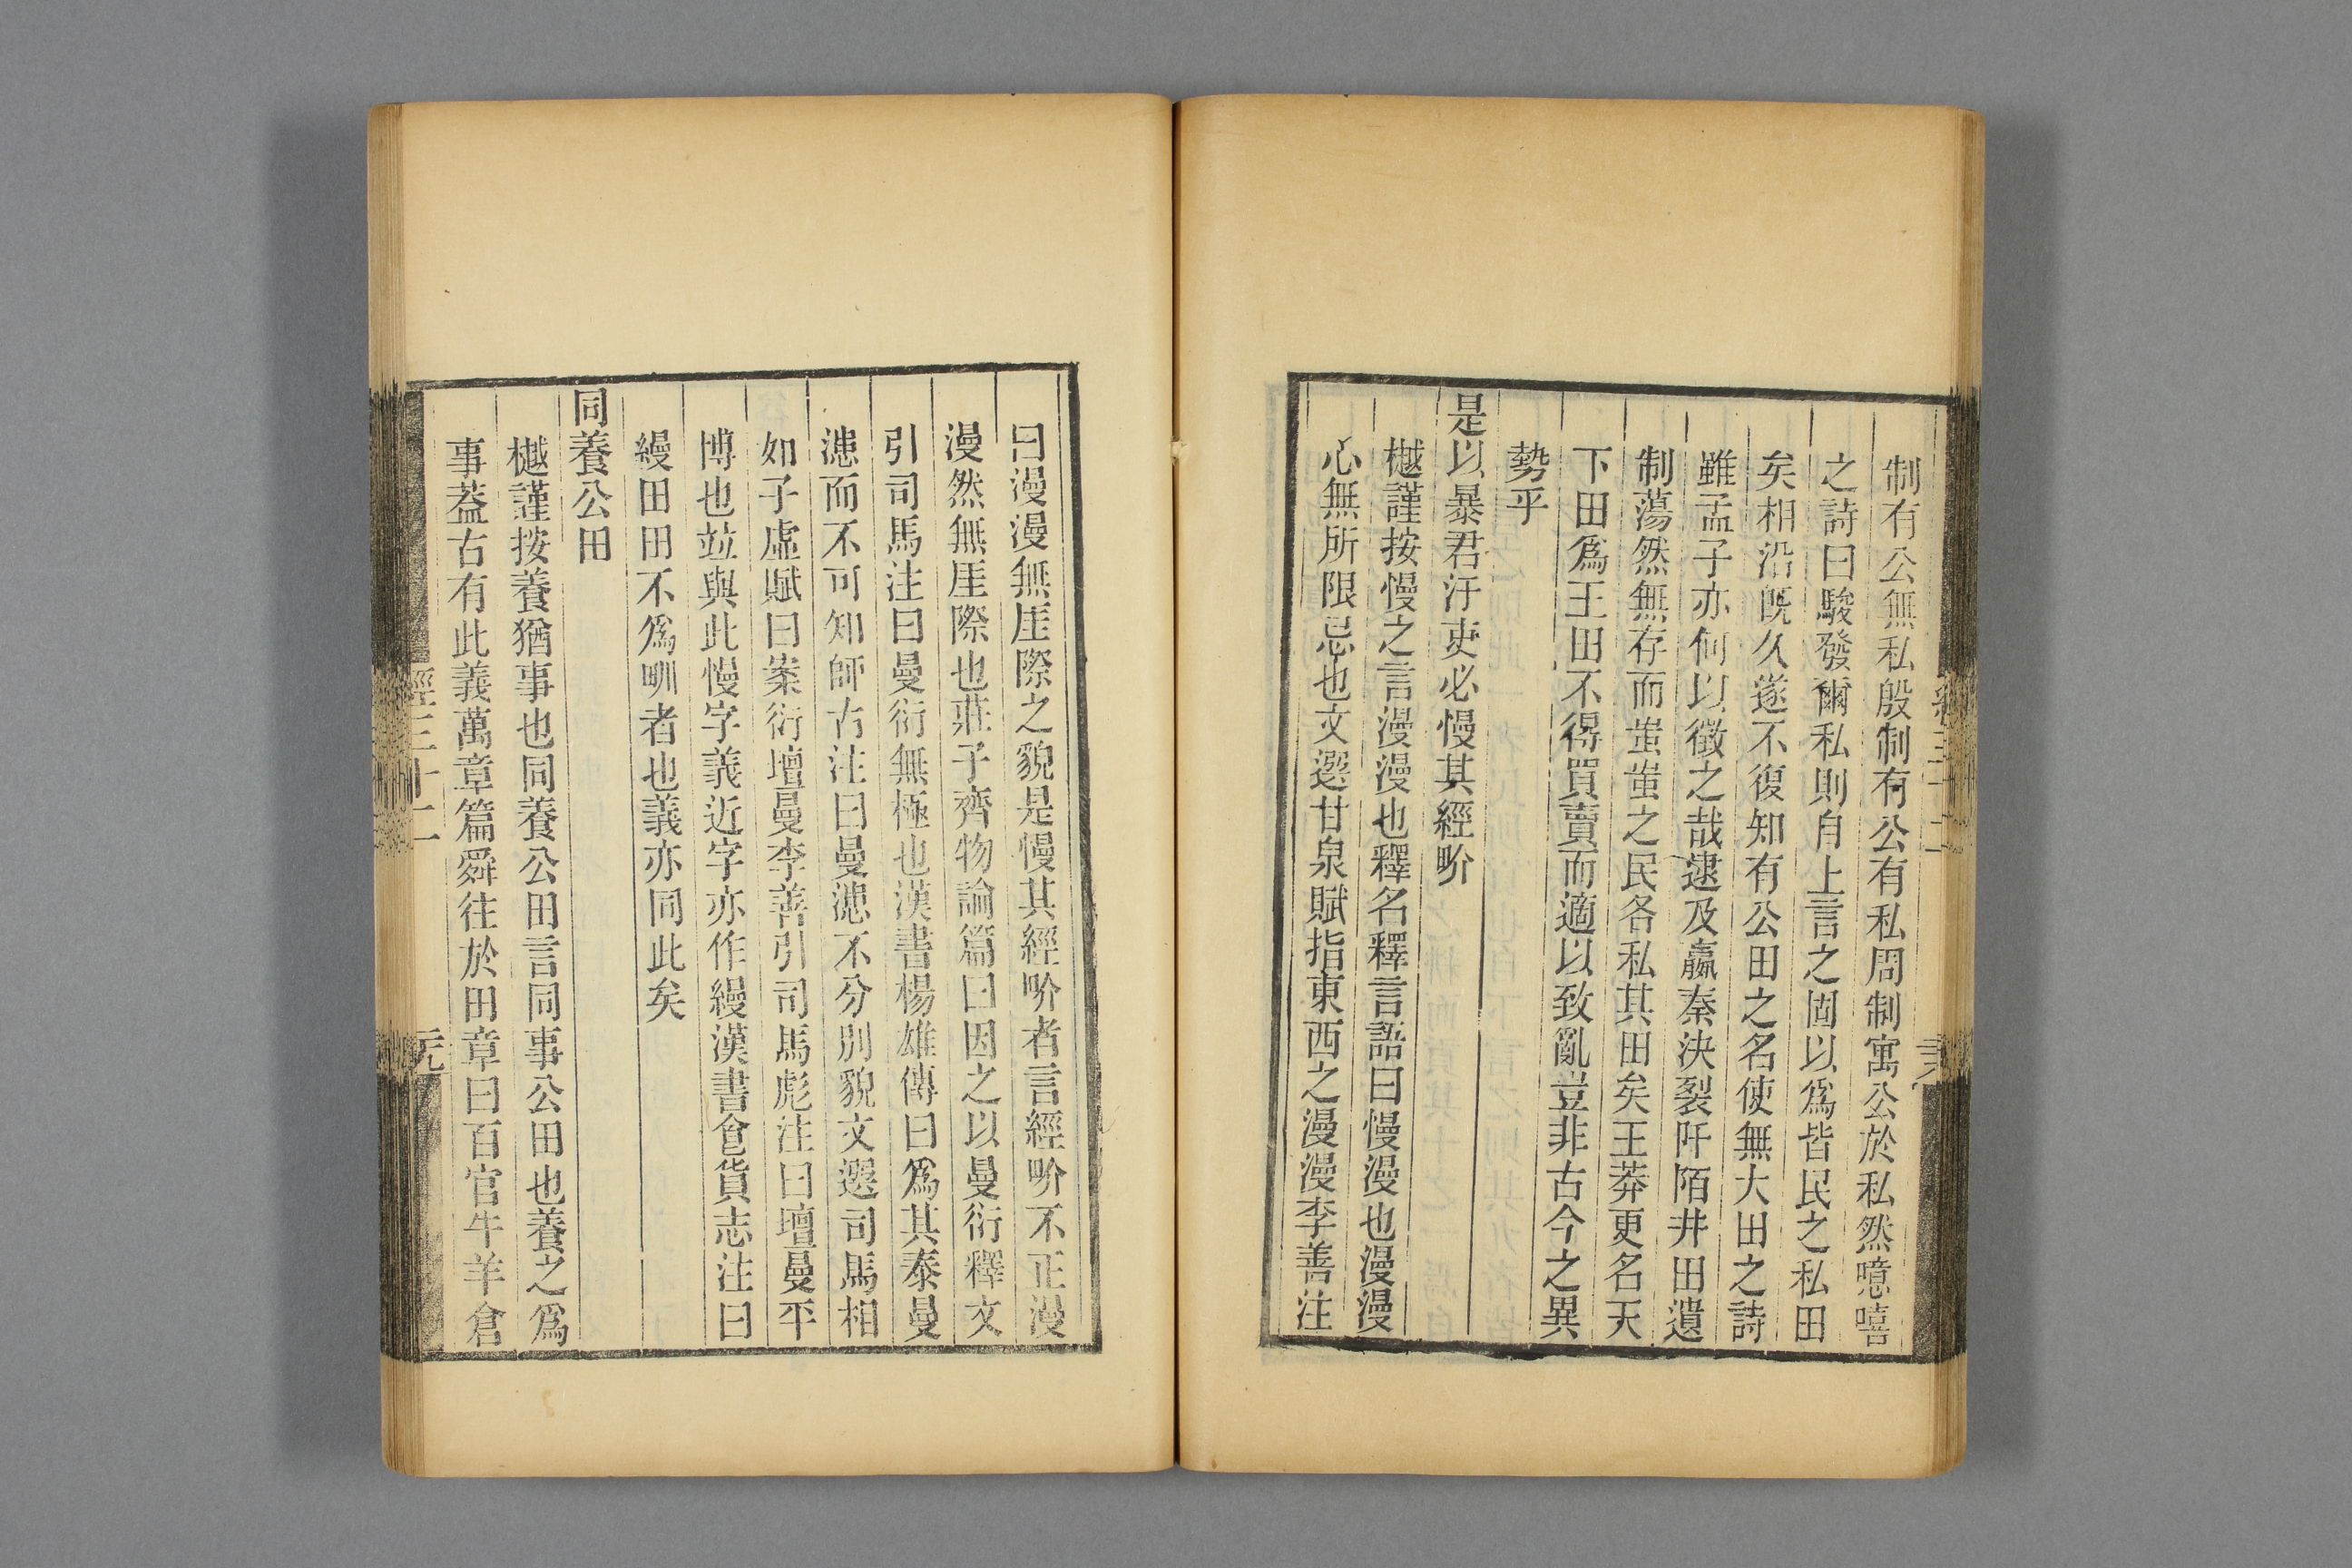 制有公無私殷制有公有私周制寓公於私然噫嘻
之詩曰駿發爾私則自上言之固以爲皆民之私田
矣相沿旣久遂不復知有公田之名使無大田之詩
雖孟子亦何以徵之哉逮及嬴秦決裂阡陌井田遺
制蕩然無存而蚩蚩之民各私其田矣王莽更名天
下田爲王田不得買賣而適以致亂豈非古今之異
勢乎
是以暴君汙吏必慢其經畍
樾謹按慢之言漫漫也釋名釋言語曰慢漫也漫漫
心無所限忌也文選甘泉賦指東西之漫漫李善注
曰漫漫無厓際之貌是慢其經畍者言經畍不正漫
漫然無厓際也莊子齊物論篇曰因之以曼衍釋文
引司馬注曰曼衍無極也漢書楊雄傳曰爲其泰曼
漶而不可知師古注曰曼漶不分別貌文選司馬相
如子虛賦曰案衍壇曼李善引司馬彪注曰壇曼平
博也竝與此慢字義近字亦作縵漢書食貨志注曰
縵田田不爲甽者也義亦同此矣
同養公田
樾謹按養猶事也同養公田言同事公田也養之爲
事葢古有此義萬章篇舜往於田章曰百官牛羊倉
經三十二